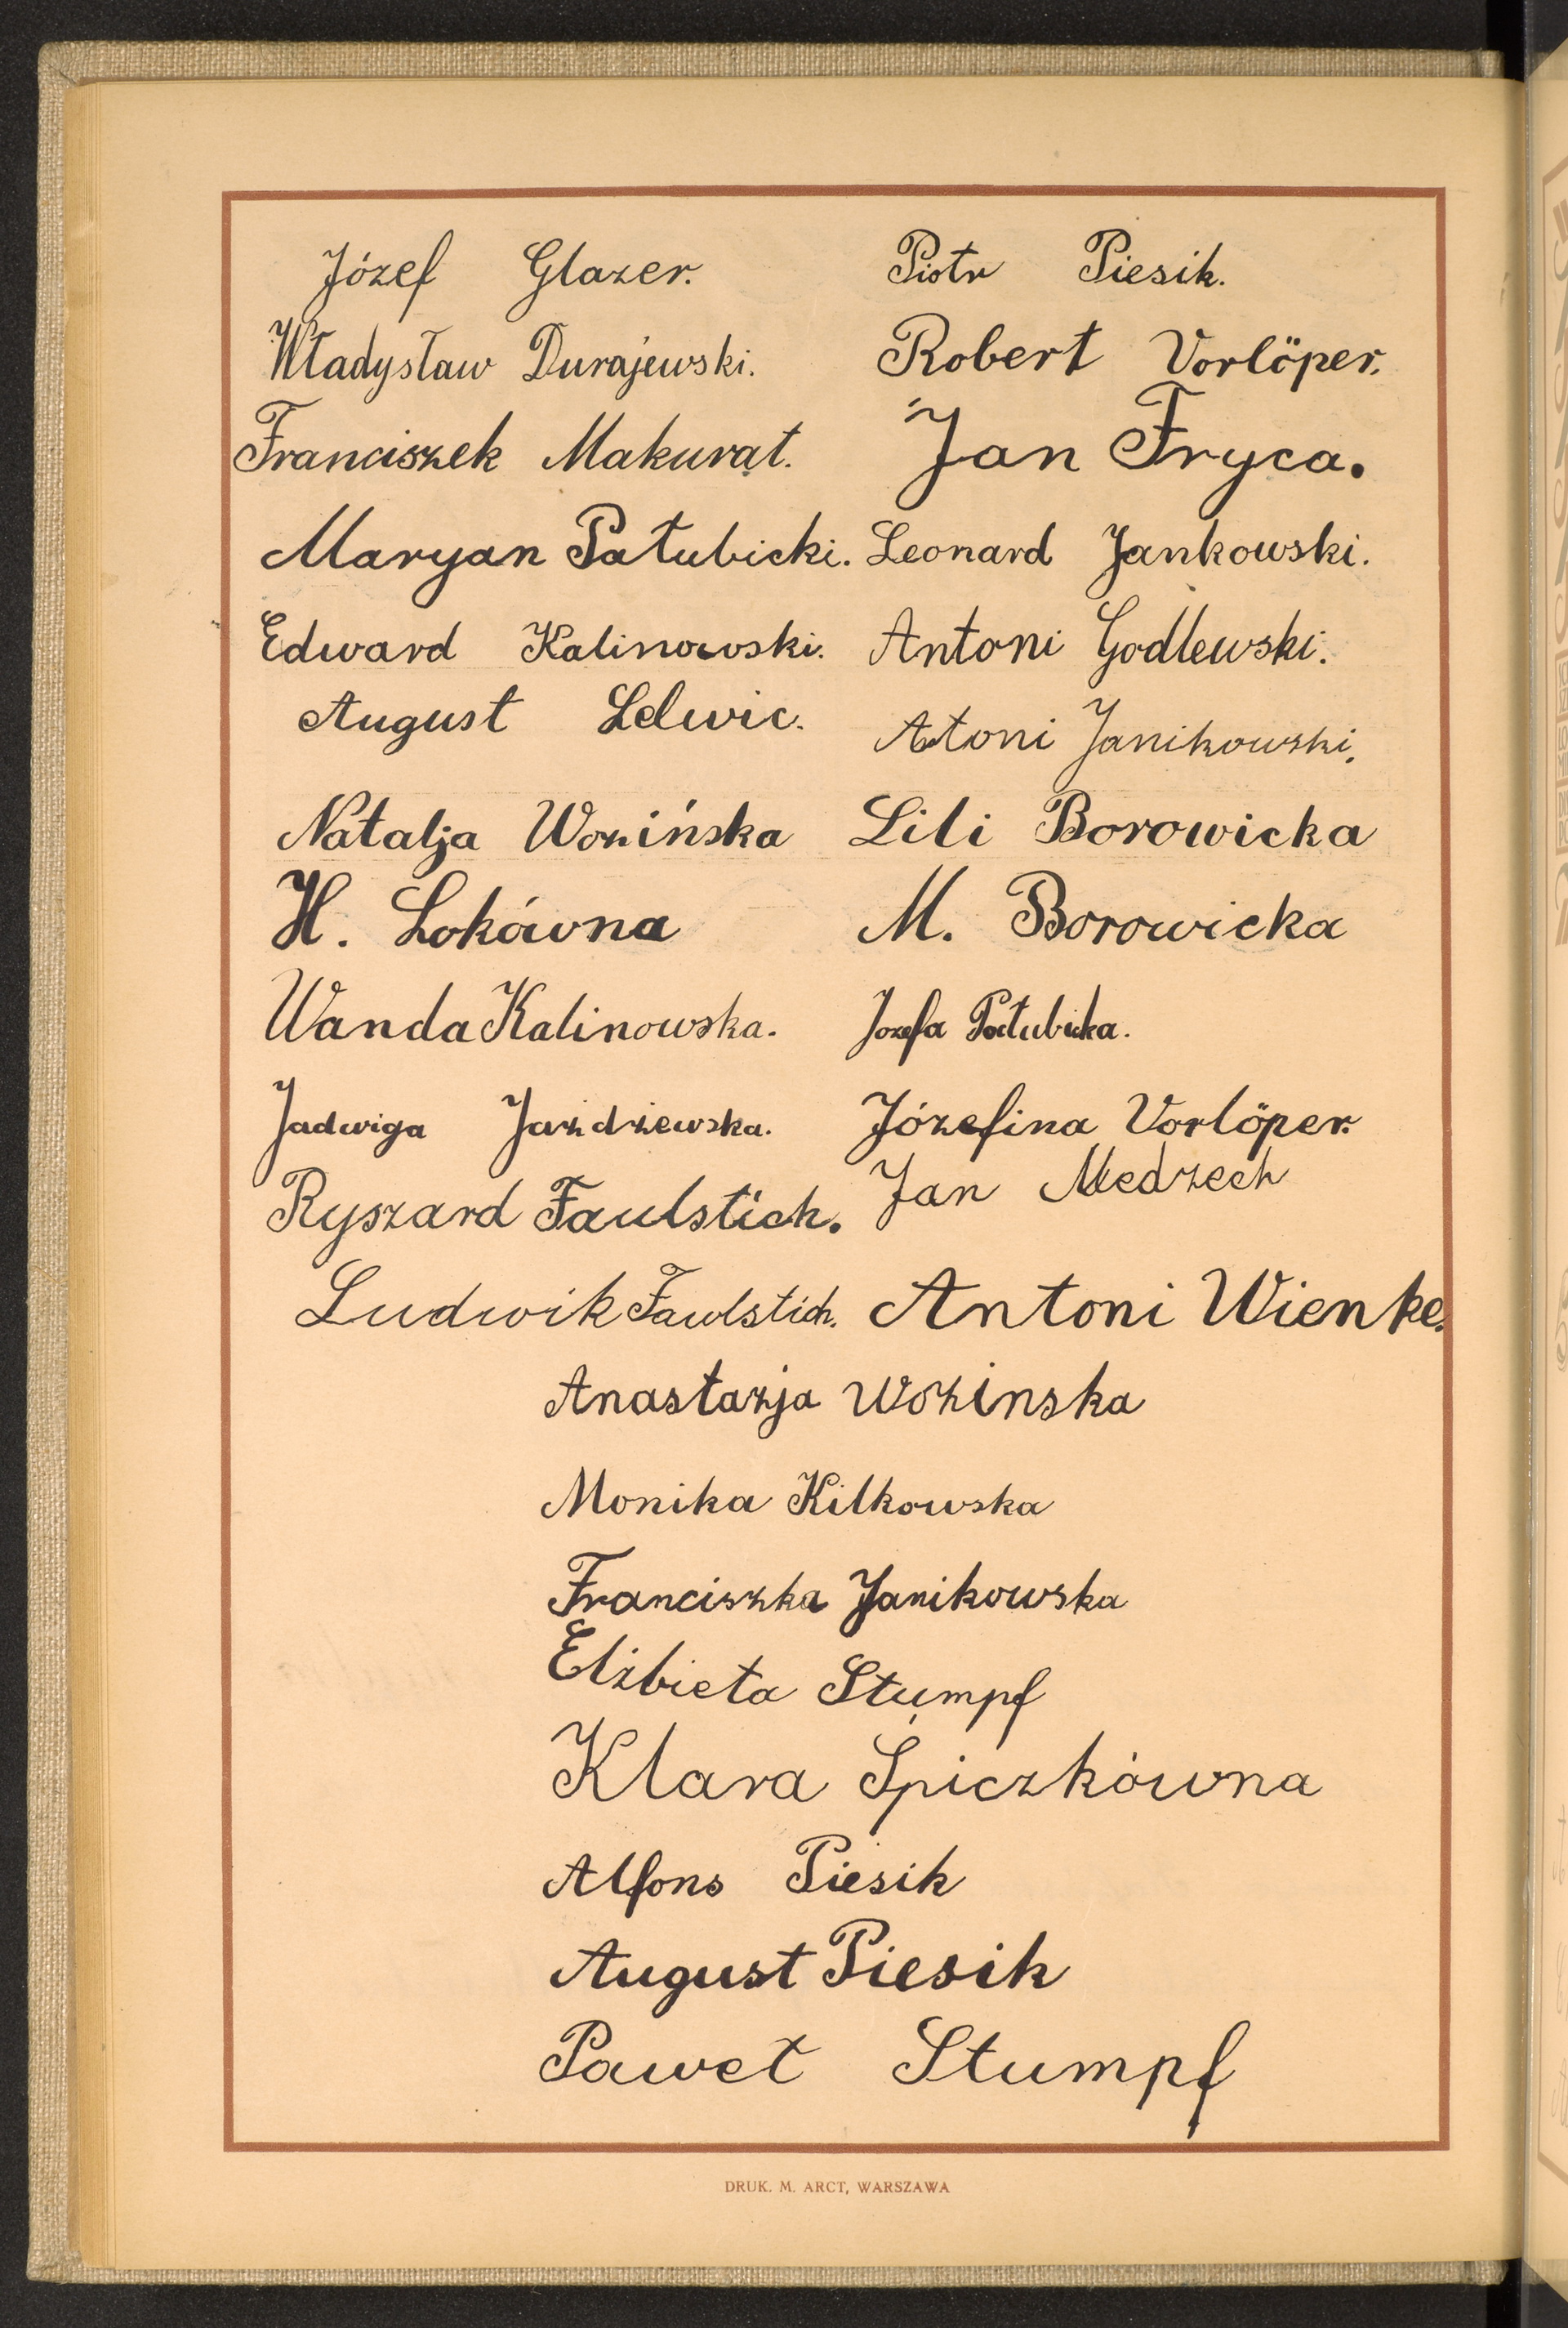 Józef Glazer. Piotr Piesik.
Władysław Durajewski. Robert Vorlöper.
Franciszek Makurat. Jan Fryca.
Maryan Pałubicki. Leonard Jankowski.
Edward Kalinowski. Antoni Godlewski.
August Lelwic. Atoni Janikowski.
Natalja Wozińska Lili Borowicka
H. Lokówna M. Borowicka
Wanda Kalinowska. Jozefa Pałubicka.
Jadwiga Jażdżewska. Józefina Vorlöper.
Ryszard Faulstich. Jan Medzech
Ludwik Fawlstich. Antoni Wienke.
Anastazja Wozinska
Monika Kilkowska
Franciszka Janikowska
Elżbieta Stumpf
Klara Spiczkówna
Alfons Piesik
August Piesik
Paweł Stumpf
DRUK. M. ARCT, WARSZAWA